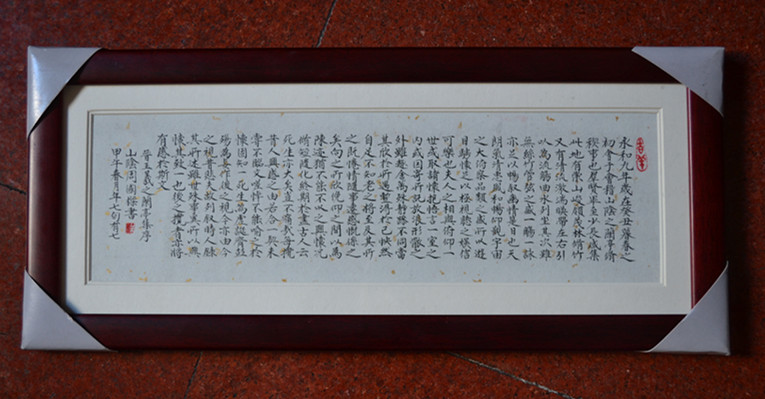 永和九年歲在癸丑暮春之
初會于會稽山陰之蘭亭脩
禊事也群賢畢至少長咸集
此地有崇山峻領茂林脩竹
又有清流激湍暎帶左右引
以為流觴曲水列坐其次雖
無絲竹管弦之盛一觴一詠
亦足以暢敘幽情是日也天
朗氣清惠風和暢仰觀宇宙
之大俯察品類之盛所以遊
目騁懷足以極視聽之娛信
可樂也夫人之相與俯仰一
世或取諸懷抱悟言一室之
內或因寄所託放浪形骸之
外雖趣舍萬殊靜躁不同當
其欣於所遇暫得於己怏然
自足不知老之將至及其所
之既惓情隨事遷感慨係之
矣向之所欣俛仰之間以為
陳迹猶不能不以之興懷況
脩短隨化終期於盡古人云
死生亦大矣豈不痛哉每攬
昔人興感之由若合一契未
嘗不臨文嗟悼不能喻之於
懷固知一死生為虛誕齊彭
殤為妄作後之視今亦由今
之視昔悲夫故列敘時人錄
其所述雖世殊事異所以興
懷其致一也後之攬者亦將
有感於斯文
晉王羲之蘭亭集序
山陰周國樑書
甲午春月年七旬有七